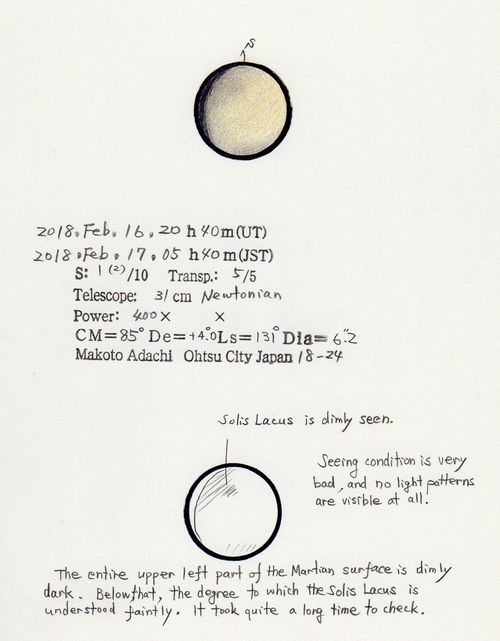 S
2018, Feb, 16, 20 h 40 m (UT)
2018, Feb, 17, 05 h 40 m (JST)
S: 1 (2)/10 Transp.: 5/5
Telescope: 31 cm Newtonian
Power: 400× ×
CM=85° De=+4.°0 Ls=131° Dia=6."2
Makoto Adachi Ohtsu City Japan 18-24
Solis Lacus is dimly seen.
Seeing condition is very
bad, and no light patterns
are visible at all.
The entire upper left part of the Martian surface is dimly
dark. Below that, the degree to which the Solis Lacus is
understood faintly. It took quite a long time to check.